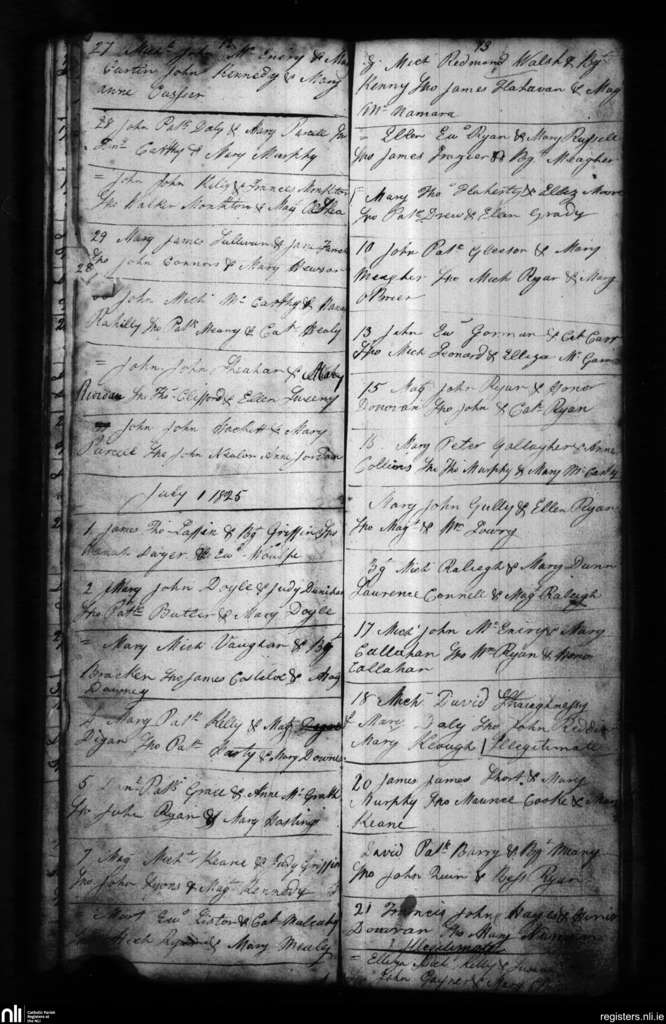 12
27 Michl John Mc Enery & Mar
Curtin John Kennedy & Mary
anne Casser
28 John Patk Daly & Mary Purcell Spo
Danl Carthy & Mary Murphy
= John John Kelly & Frances Monkton
Spo Walker Monkton & Mag O Shea
29 Mary James Sullivan & Jane
Spo John Connors & Mary Hewson
28
John Michl Mc Carthy &
Rahilly Spo Patk Meany & Cath Healy
= John John Sheahan & Mary
Riordan Spo Thos Clifford & Ellen Sweeny
John John Hackett & Mary
Purcell Spo John Nealon Anne Jordan
July 1 1825
1 James Thos Laffin & Bgt Griffin Spo
Hanah Dwyer & Ewd Woulfe
2 Mary John Doyle & Judy
Spo Patk Butler & Mary Doyle
= Mary Michl Vaughan & Bgt
Bracken Spo James Costeloe & Mag
Downey
4 Mary Patk Kelly & Magt
Digan Spo Patk Carty & Mary Downes
5 Danl Patk Grace & Anne Mc Grath
Spo John Ryan & Mary Hastings
7 Mag Michl Keane & Judy Griffin
Spo John Lyons & Magt Kennedy
Mary Ewd Liston & Cath Mulcahy
Mich & Mary Mealy
13
9 Mich Redmond Walsh & Bgt
Kenny Spo James Flahavan & Mag
Mc Namara
= Ellen Ewd Ryan & Mary Russell
Spo James Frazier & Bgt Meagher
= Mary Thos Flaherty & Elleza Moore
Spo Patk Drew & Ellen Grady
10 John Patk Gleeson & Mary
Meagher Spo Mich Ryan & Mary
O Brien
13 John Ewd Gorman & Cat Carr
Spo Mich Leonard & Elleza Mc
15 Mag John Ryan & Honor
Donovan Spo John & Cath Ryan
15 Mary Peter Gallagher & Anne
Collins Spo Thos Murphy & Mary Mc Carthy
Mary John Gully & Ellen Ryan
Spo Magt & Wm Lowry
Mich Raleigh & Mary Dunn
Laurence Connell & Mag Raleigh
17 Michl John Mc Enery & Mary
Callahan Spo Wm Ryan & Honor
Callahan
18 Michl David Shaughnessy
& Mary Daly Spo John Reddin
Mary Keough / Illegitimate
20 James James Short & Mary
Murphy Spo Maurice Cooke & Mary
Keane
David Patk Barry & Bgt Meany
Spo John Quin & Bess Ryan
21 Francis John Hayes &
Donovan Spo Mary
Illegitimate
= Elleza Michl Kelly &
Spo John & Mary
nli
Catholic Parish
Registers at
the NLI
registers.nli.ie